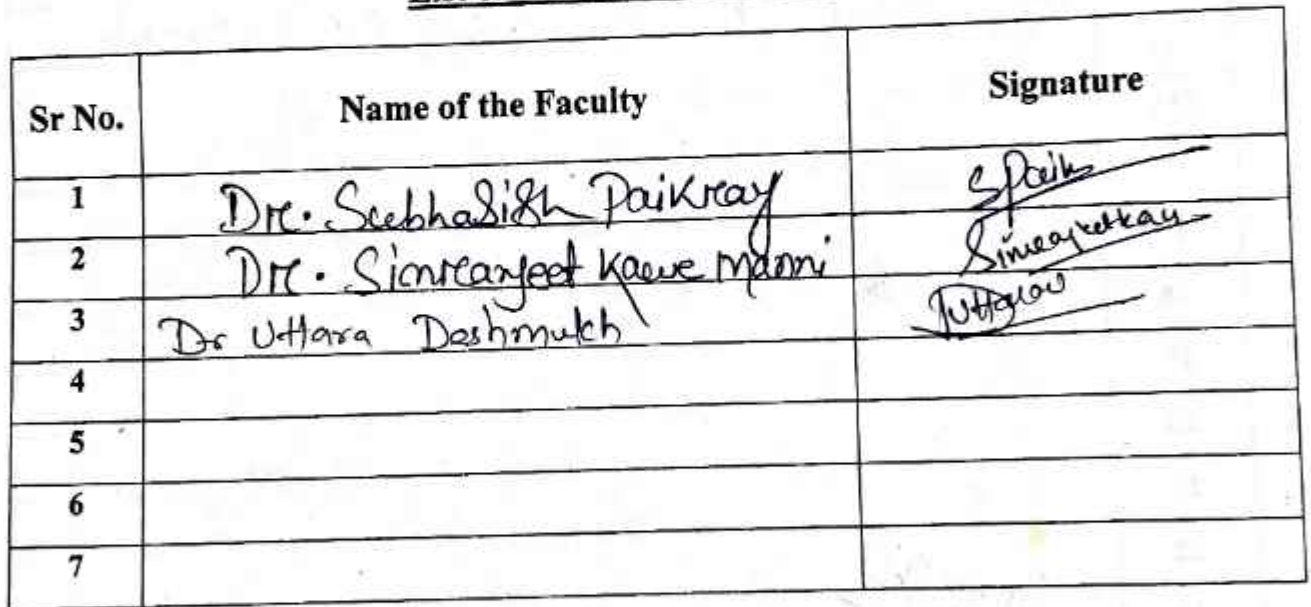 Sr No. Name of the Faculty Signature
1 Dr. Subhasish Paikray SPaik
2 Dr. Simranjeet Kaur Manni
3 Dr Uttara Deshmukh
4
5
6
7